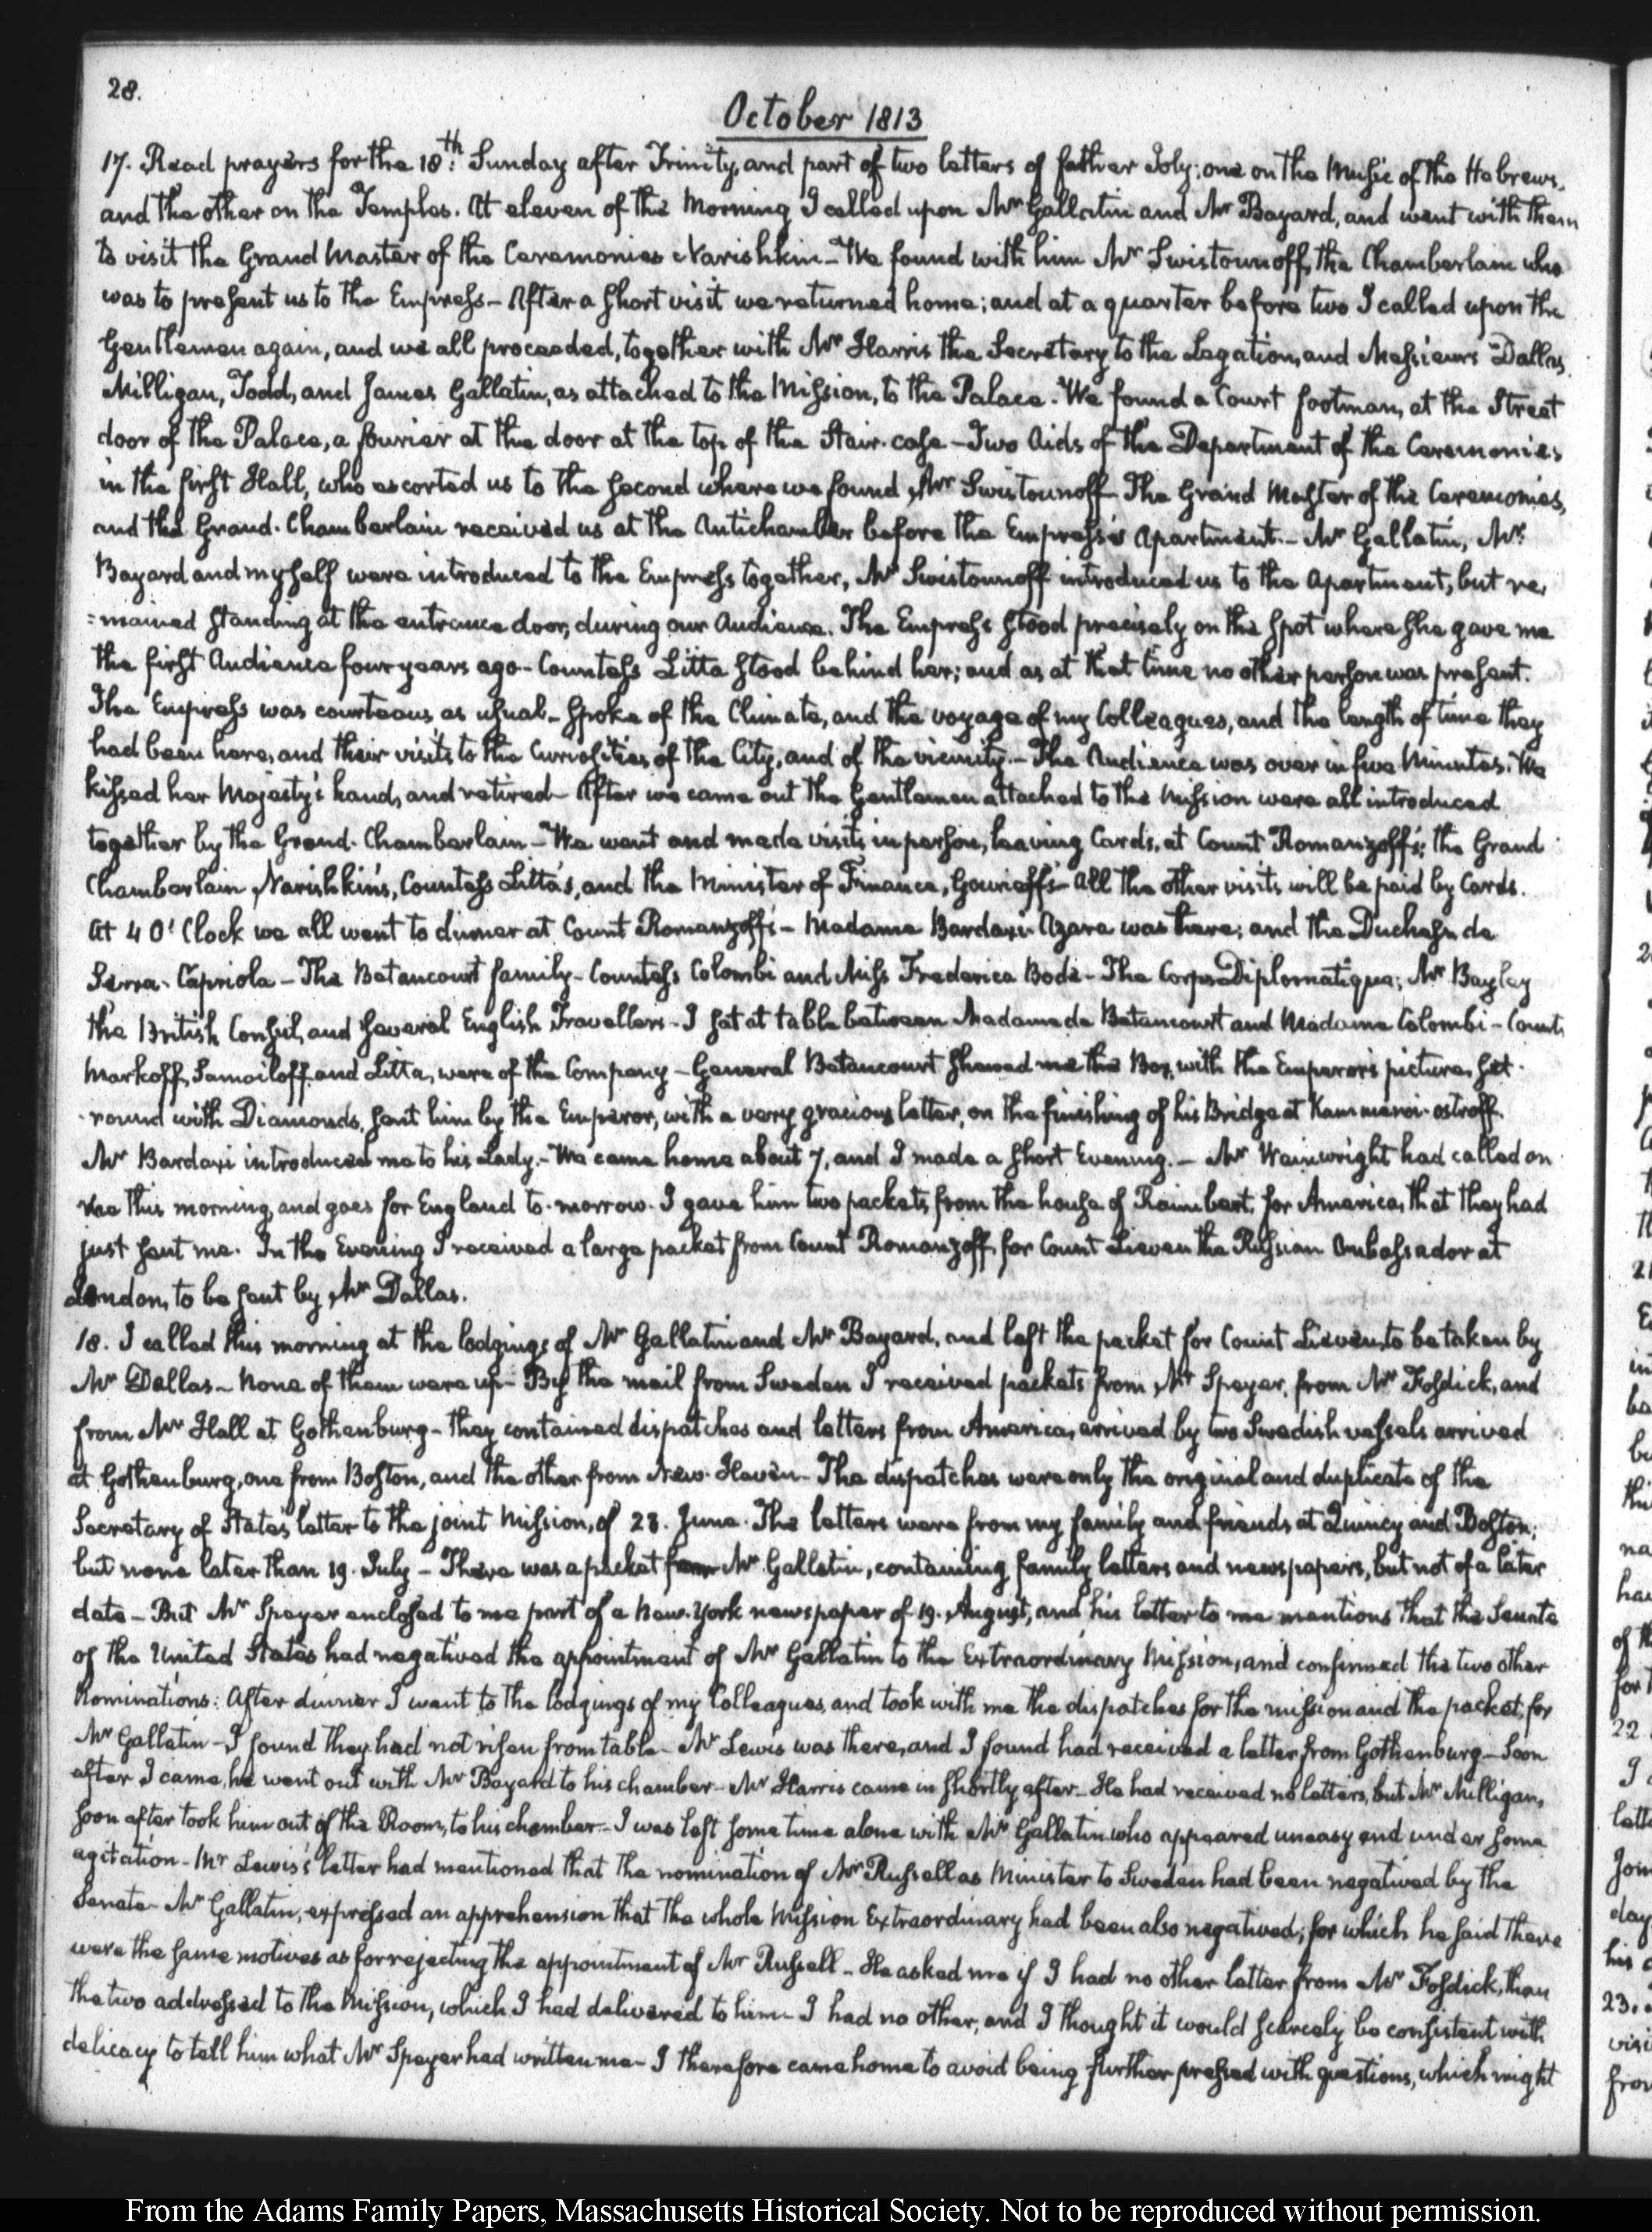 28.
October 1813
17. Read prayers for the 18th. Sunday after Trinity, and part of two letters of father Joly; one on the Music of the Hebrews,
and the other on the Temples. At eleven of the Morning I called upon Mr Gallatin and Mr Bayard, and went with them
to visit the Grand Master of the Ceremonies Narishkin – We found with him Mr Swistounoff, the Chamberlain who
was to present us to the Empress – After a short visit we returned home; and at a quarter before two I called upon the
Gentlemen again, and we all proceeded, together with Mr Harris the Secretary to the Legation, and Messieurs Dallas,
Milligan, Todd, and James Gallatin, as attached to the Mission, to the Palace. We found a Court footman, at the Street
door of the Palace, a fourier at the door at the top of the Stair-case – Two Aids of the Department of the Ceremonies
in the first Hall, who escorted us to the second where we found Mr Swistounoff – The Grand Master of the Ceremonies,
and the Grand-Chamberlain received us at the Antichamber before the Empress's Apartment. – Mr Gallatin, Mr
Bayard and myself were introduced to the Empress together, Mr Swistounoff introduced us to the Apartment, but re-
=mained standing at the entrance door, during our Audience. The Empress stood precisely on the spot where she gave me
the first Audience four years ago – Countess Litta stood behind her; and as at that time no other person was present.
The Empress was courteous as usual – Spoke of the Climate, and the voyage of my Colleagues, and the length of time they
had been here, and their visits to the Curiosities of the City, and of the vicinity. – The Audience was over in five Minutes. We
kissed her Majesty's hand, and retired – After we came out the Gentlemen attached to the Mission were all introduced
together by the Grand-Chamberlain – We went and made visits in person, leaving Cards, at Count Romanzoff's; the Grand
Chamberlain Narishkin's, Countess Litta's, and the Minister of Finance, Gourieff's – All the other visits will be paid by Cards.
At 4 O'Clock we all went to dinner at Count Romanzoff's – Madame Bardaxi Azara was there; and the Duchess de
Serra-Capriola – The Betancourt family – Countess Colombi and Miss Frederica Bode – The Corps Diplomatique; Mr Bayley
the British Consul, and several English Travellers – I sat at table between Madame de Betancourt and Madame Colombi – Counts
Markoff, Samoiloff and Litta, were of the Company – General Betancourt shewed me the Box, with the Emperor's picture, set
round with Diamonds, sent him by the Emperor, with a very gracious letter, on the finishing of his Bridge at Kammenoi-ostroff.
Mr Bardaxi introduced me to his Lady. – We came home about 7, and I made a short Evening. – Mr Wainwright had called on
me this morning, and goes for England to-morrow. I gave him two packets from the house of Raimbert, for America, that they had
just sent me. In the Evening I received a large packet from Count Romanzoff, for Count Lieven the Russian Ambassador at
London, to be sent by Mr Dallas.
18. I called this morning at the lodgings of Mr Gallatin and Mr Bayard, and left the packet for Count Lieven, to be taken by
Mr Dallas – None of them were up – By the mail from Sweden I received packets from Mr Speyer, from Mr Fosdick, and
from Mr Hall at Gothenburg – they contained dispatches and letters from America, arrived by two Swedish vessels arrived
at Gothenburg, one from Boston, and the other from New-Haven – The dispatches were only the original and duplicate of the
Secretary of State's letter to the joint Mission, of 23. June. The letters were from my family and friends at Quincy and Boston;
but none later than 19. July – There was a packet for Mr Gallatin, containing family letters and newspapers, but not of a later
date – But Mr Speyer enclosed to me part of a New-York newspaper of 19. August, and his letter to me mentions that the Senate
of the United States had negatived the appointment of Mr Gallatin to the Extraordinary Mission, and confirmed the two other
Nominations. After dinner I went to the lodgings of my Colleagues, and took with me the dispatches for the mission and the packet for
Mr Gallatin – I found they had not risen from table – Mr Lewis was there, and I found had received a letter from Gothenburg – Soon
after I came, he went out with Mr Bayard to his chamber – Mr Harris came in shortly after – He had received no letters, but Mr Milligan,
soon after took him out of the Room, to his chamber – I was left some time alone with Mr Gallatin who appeared uneasy and under some
agitation – Mr Lewis's letter had mentioned that the nomination of Mr Russell as Minister to Sweden had been negatived by the
Senate – Mr Gallatin, expressed an apprehension that the whole Mission Extraordinary had been also negatived; for which he said there
were the same motives as for rejecting the appointment of Mr Russell – He asked me if I had no other letter from Mr Fosdick, than
the two addressed to the Mission, which I had delivered to him – I had no other, and I thought it would scarcely be consistent with
delicacy to tell him what Mr Speyer had written me – I therefore came home to avoid being further pressed with questions, which might
From the Adams Family Papers, Massachusetts Historical Society. Not to be reproduced without permission.